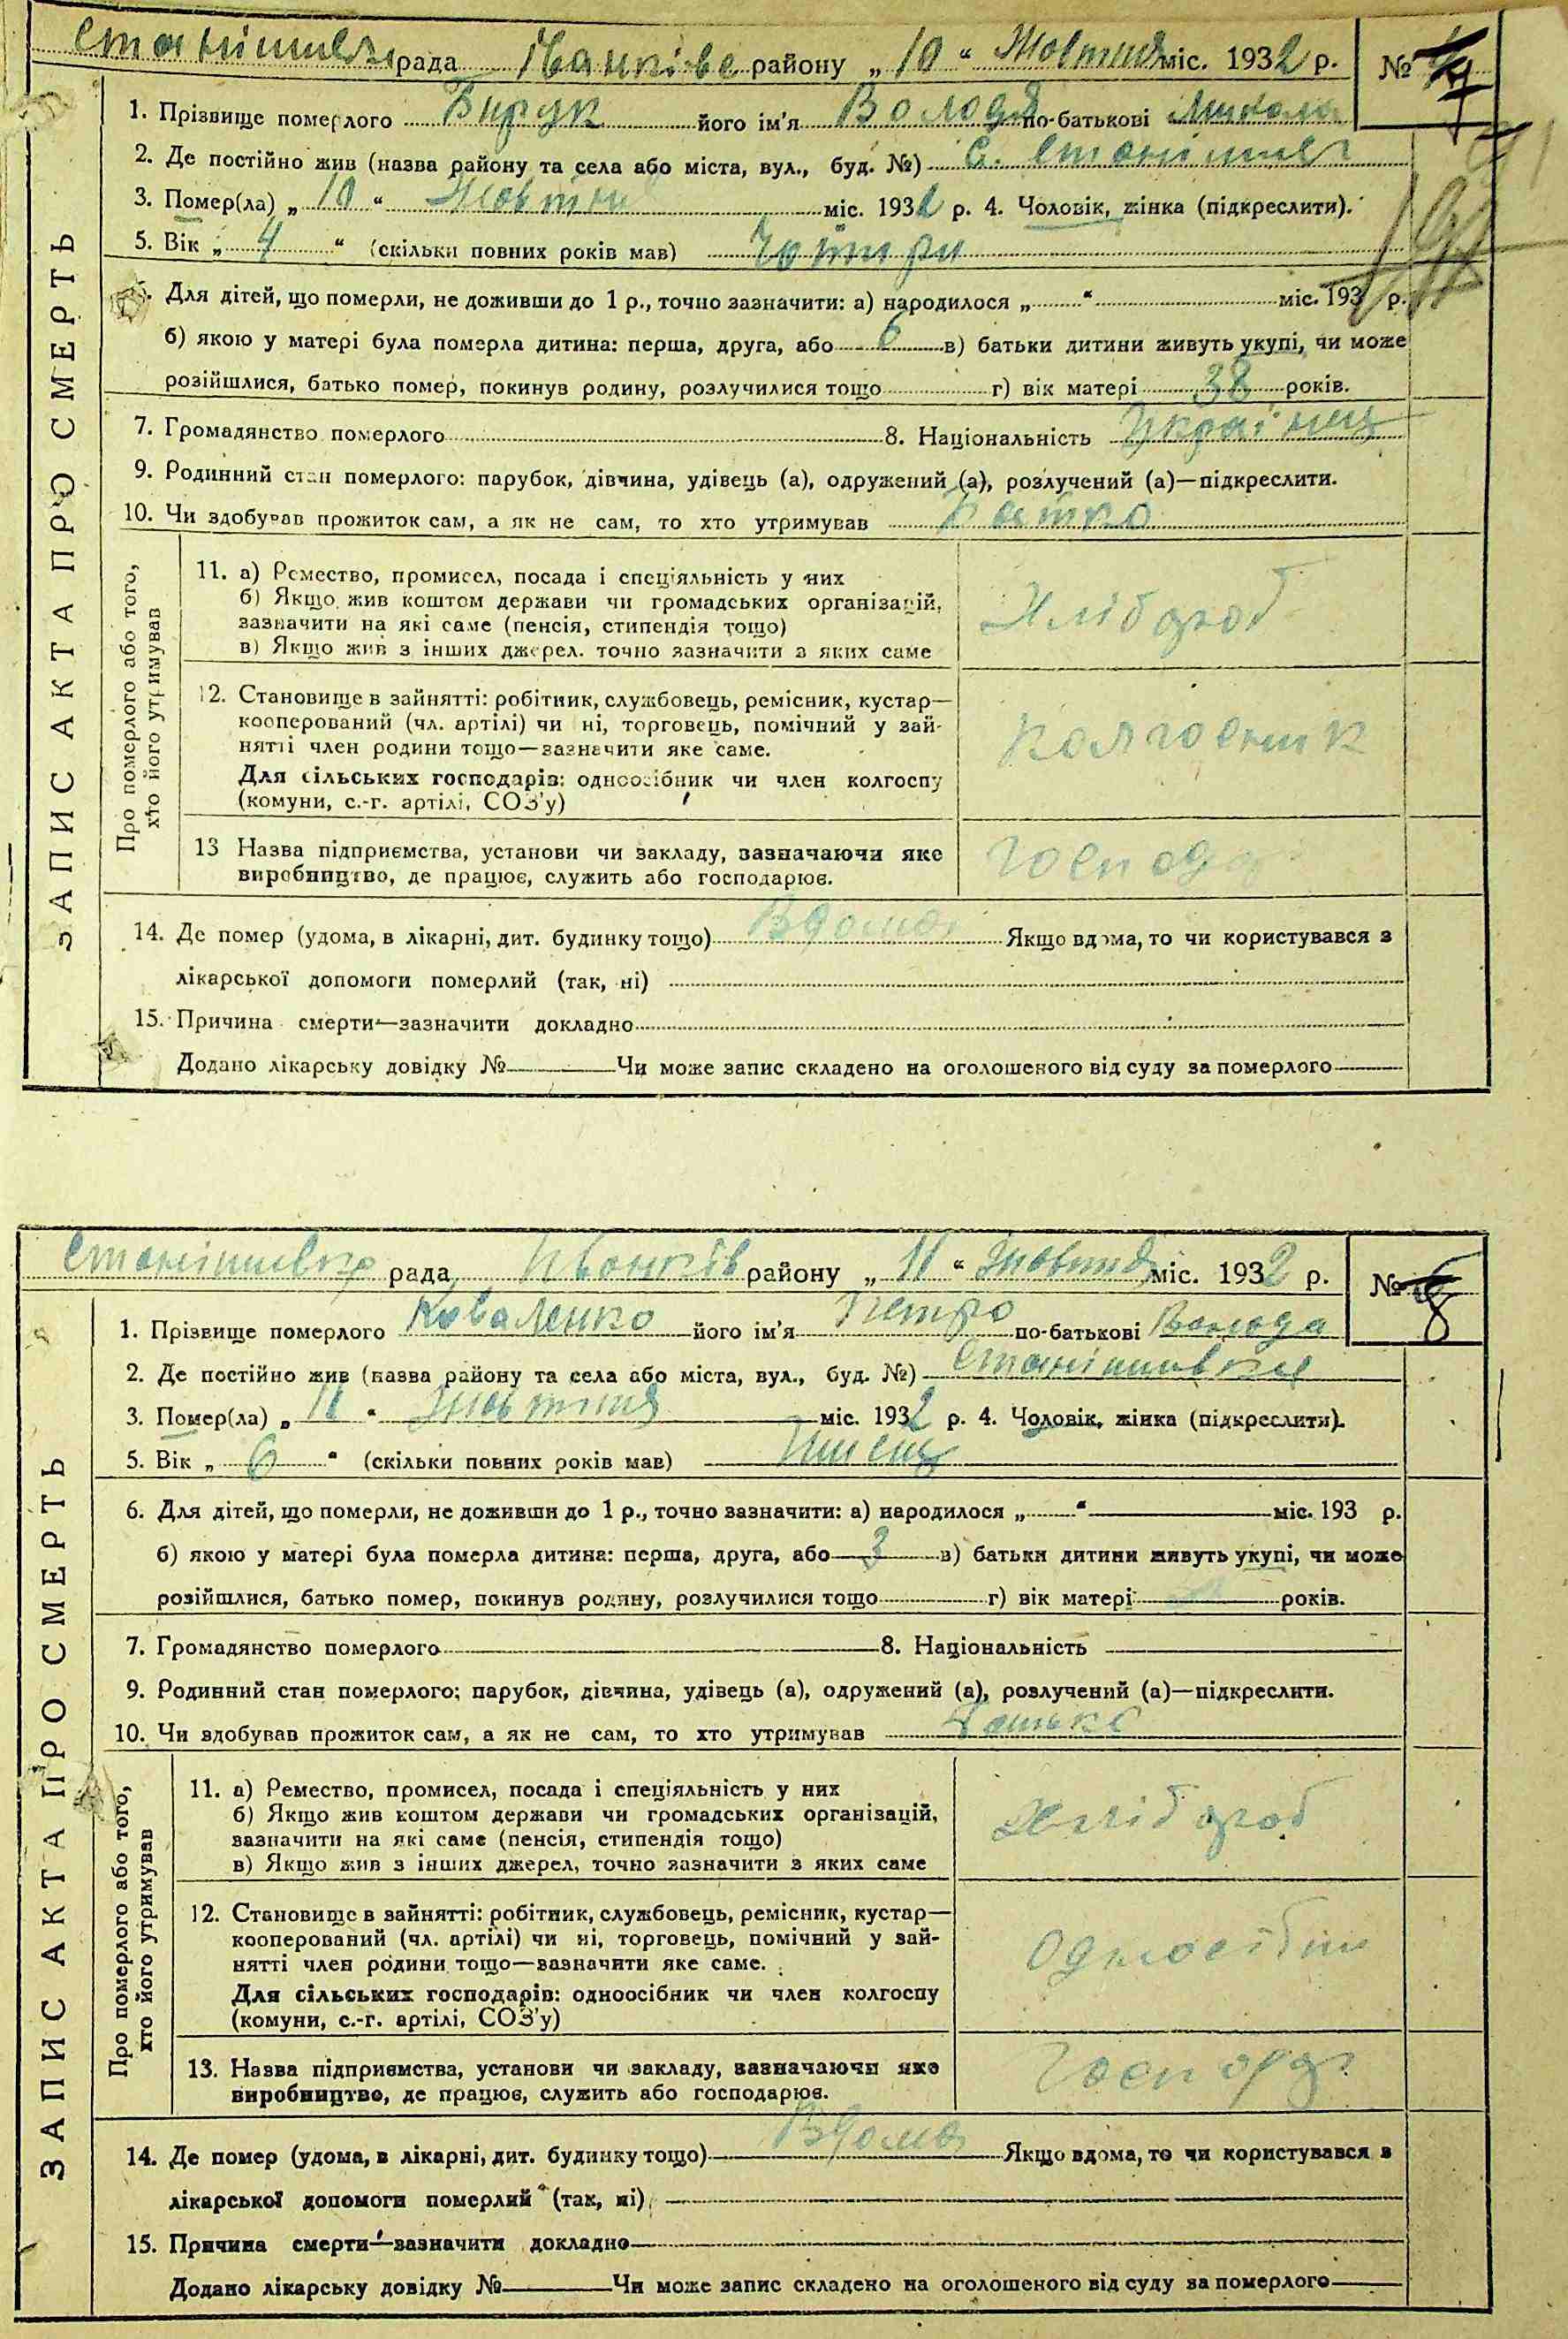 рада Іванківс району „ 10 “ Жовтня міс. 1932 р. №
1. Прізвище померлого Бирук його ім'я Володя по-батькові Микола
2. Де постійно жив (назва району та села або міста, вул., буд. №) с.
3. Помер(ла) „ 10 “ міс. 1932 р. 4. Чоловік, жінка (підкреслити).
5. Вік „ 4 “ (скільки повних років мав)
Для дітей, що померли, не доживши до 1 р., точно зазначити: а) народилося „ “ міс. 193 р.
б) якою у матері була померла дитина: перша, друга, або 6 в) батьки дитини живуть укупі, чи може
розійшлися, батько помер, покинув родину, розлучилися тощо г) вік матері 38 років.
7. Громадянство померлого 8. Національність Українец
9. Родинний стан померлого: парубок, дівчина, удівець (а), одружений (а), розлучений (а)—підкреслити.
10. Чи здобував прожиток сам, а як не сам, то хто утримував Батко
ЗАПИС АКТА ПРО СМЕРТЬ
Про померлого або того,
хто його утримував
11. а) Ремество, промисел, посада і спеціяльність у них
б) Якщо жив коштом держави чи громадських організацій,
зазначити на які саме (пенсія, стипендія тощо)
в) Якщо жив з інших джерел, точно зазначити з яких саме
Хлібороб
12. Становище в зайнятті: робітник, службовець, ремісник, кустар—
кооперований (чл. артілі) чи ні, торговець, помічний у зай-
нятті член родини тощо—зазначити яке саме.
Для сільських господарів: одноосібник чи член колгоспу
(комуни, с.-г. артілі, СОЗ'у)
Колгосник
13 Назва підприємства, установи чи закладу, зазначаючи яке
виробництво, де працює, служить або господарює.
14. Де помер (удома, в лікарні, дит. будинку тощо) Вдома Якщо вдома, то чи користувався з
лікарської допомоги померлий (так, ні)
15. Причина смерти—зазначити докладно
Додано лікарську довідку № Чи може запис складено на оголошеного від суду за померлого
Станішивка рада Іванків району „ 11 “ Жовтня міс. 1932 р. № 8
1. Прізвище померлого Коваленко його ім'я Петро по-батькові Волода
2. Де постійно жив (назва району та села або міста, вул., буд. №) Станішивка
3. Помер(ла) „ 11 “ Жовтня міс. 1932 р. 4. Чоловік, жінка (підкреслити).
5. Вік „ 6 “ (скільки повних років мав)
6. Для дітей, що померли, не доживши до 1 р., точно зазначити: а) народилося „ “ міс. 193 р.
б) якою у матері була померла дитина: перша, друга, або 3 в) батьки дитини живуть укупі, чи може
розійшлися, батько помер, покинув родину, розлучилися тощо г) вік матері років.
7. Громадянство померлого 8. Національність
9. Родинний стан померлого; парубок, дівчина, удівець (а), одружений (а), розлучений (а)—підкреслити.
10. Чи здобував прожиток сам, а як не сам, то хто утримував Батько
ЗАПИС АКТА ПРО СМЕРТЬ
Про померлого або того,
хто його утримував
11. а) Ремество, промисел, посада і спеціяльність у них
б) Якщо жив коштом держави чи громадських організацій,
зазначити на які саме (пенсія, стипендія тощо)
в) Якщо жив з інших джерел, точно зазначити з яких саме
Хлібороб
12. Становище в зайнятті: робітник, службовець, ремісник, кустар—
кооперований (чл. артілі) чи ні, торговець, помічний у зай-
нятті член родини тощо—зазначити яке саме.
Для сільських господарів: одноосібник чи член колгоспу
(комуни, с.-г. артілі, СОЗ'у)
13. Назва підприємства, установи чи закладу, зазначаючи яке
виробництво, де працює, служить або господарює.
14. Де помер (удома, в лікарні, дит. будинку тощо) Вдома Якщо вдома, то чи користувався в
лікарської допомоги померлий (так, ні)
15. Причина смерти—зазначити докладно
Додано лікарську довідку № Чи може запис складено на оголошеного від суду за померлого